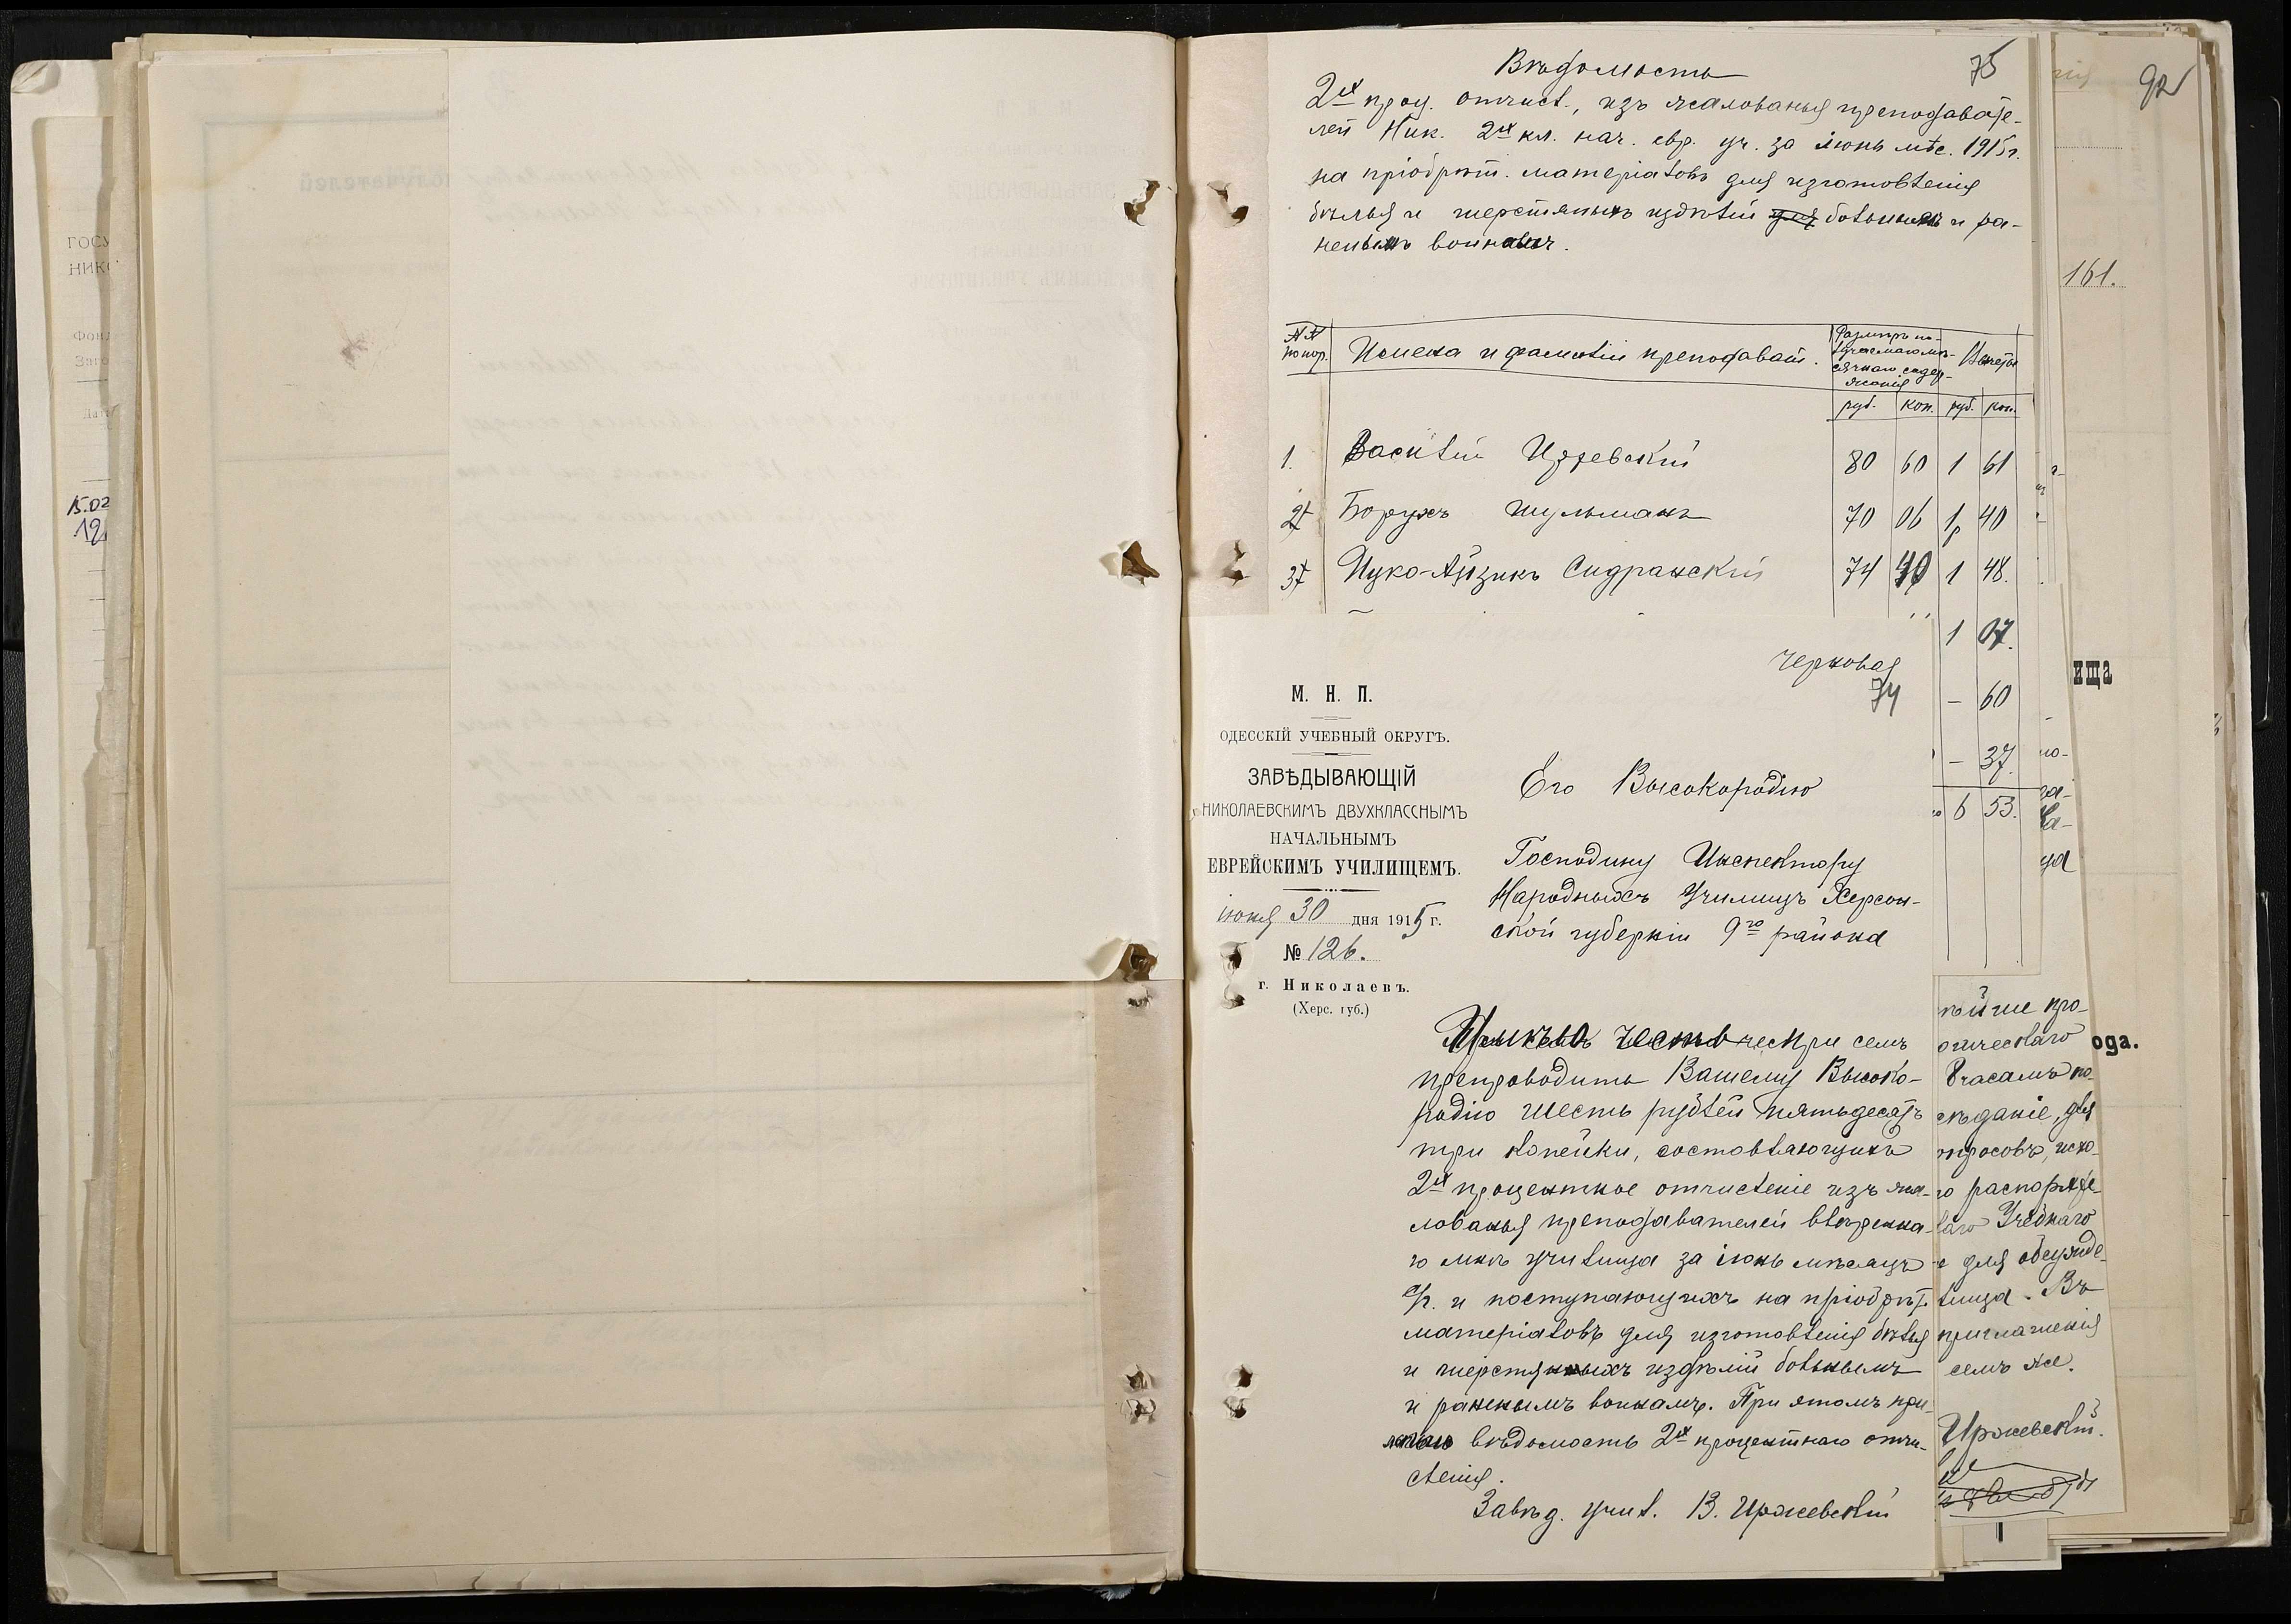 ГОСУ
НИКО
Фонд
Заго
Дата
15.02
12
Вѣдомость
75
2х проц. отчисл., изъ жалованья преподавате-
лей Ник. 2х кл. нач. евр. уч. за іюнь мѣс. 1915 г.
на пріобрѣт. матеріаловъ для изготовленія
бѣлья и шерстяныхъ издѣлій для больнымъ и ра-
ненымъ воинамъ.
№№ по пор.
Имена и фамиліи преподават.
Размѣръ по-
лучаемаго мѣ-
сячнаго содер-
жанія
Вычеты
руб. коп. руб. коп.
1. Василій Иржевскій 80 60 1 61
2 Борухъ Шульманъ 70 06 1 40
3 Ицко-Айзикъ Сидранскій 74 40 1 48.
1 07.
- 60
- 37.
6 53.
92
161.
ища
ода.
черновая
74
М. Н. П.
ОДЕССКІЙ УЧЕБНЫЙ ОКРУГЪ.
ЗАВѢДЫВАЮЩІЙ
НИКОЛАЕВСКИМЪ ДВУХКЛАССНЫМЪ
НАЧАЛЬНЫМЪ
ЕВРЕЙСКИМЪ УЧИЛИЩЕМЪ.
іюня 30 дня 1915 г.
№ 126.
г. Николаевъ.
(Херс. губ.)
Его Высокородію
Господину Инспектору
Народныхъ Училищъ Херсон-
ской губерніи 9го района
при семъ
препроводить Вашему Высоко-
родію шесть рублей пятьдесятъ
три копейки, составляющихъ
2х процентное отчисленіе изъ жа-
лованья преподавателей ввѣренна-
го мнѣ училища за іюнь мѣсяцъ
с/г. и поступающихъ на пріобрѣт.
матеріаловъ для изготовленія бѣлья
и шерстяныхъ издѣлій больнымъ
и раненымъ воинамъ. При этомъ при-
лагаю вѣдомость 2х процентнаго отчи-
сленія.
Завѣд. учил. В. Иржевскій
нѣйше про-
огическаго
8 часамъ по-
сѣданіе, для
просовъ, исхо-
го распоряже-
лаго Учебнаго
е для обсужде-
лища. Въ
приглашенія
семъ же.
Иржевскій.